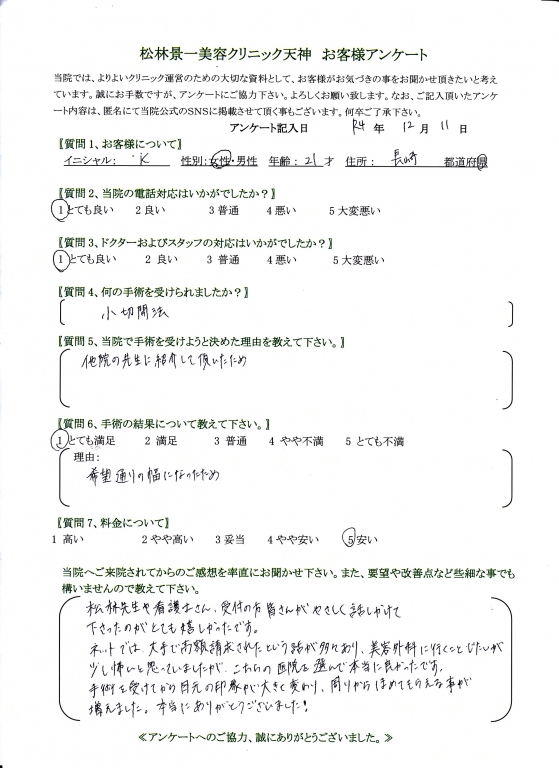 松林景一美容クリニック天神 お客様アンケート
当院では、よりよいクリニック運営のための大切な資料として、お客様がお気づきの事をお聞かせ頂きたいと考え
ています。誠にお手数ですが、アンケートにご協力下さい。よろしくお願い致します。なお、ご記入頂いたアンケ
ート内容は、匿名にて当院公式のSNSに掲載させて頂く事もございます。何卒ご了承下さい。
アンケート記入日 R4 年 12 月 11 日
〖質問1、お客様について〗
イニシャル: K 性別:女性・男性 年齢: 21 才 住所: 長崎 都道府県
〖質問2、当院の電話対応はいかがでしたか?〗
1とても良い 2 良い 3 普通 4 悪い 5 大変悪い
〖質問3、ドクターおよびスタッフの対応はいかがでしたか?〗
1とても良い 2 良い 3 普通 4 悪い 5 大変悪い
〖質問4、何の手術を受けられましたか?〗
小切開法
〖質問5、当院で手術を受けようと決めた理由を教えて下さい。〗
他院の先生に紹介して頂いたため
〖質問6、手術の結果について教えて下さい。〗
1とても満足 2 満足 3 普通 4 やや不満 5 とても不満
理由:
希望通りの幅になったため
〖質問7、料金について〗
1 高い 2 やや高い 3 妥当 4 やや安い 5 安い
当院へご来院されてからのご感想を率直にお聞かせ下さい。また、要望や改善点など些細な事でも
構いませんので教えて下さい。
松林先生や看護士さん、受付の方皆さんがやさしく話しかけて
下さったのがとても嬉しかったです。
ネットでは、大手で高額請求されたという話が多々あり、美容外科に行くことじたいが
少し怖いと思っていましたが、こちらの医院を選んで本当に良かったです。
手術を受けてから目元の印象が大きく変わり、周りからほめてもらえる事が
増えました。本当にありがとうございました!
≪アンケートへのご協力、誠にありがとうございました。≫